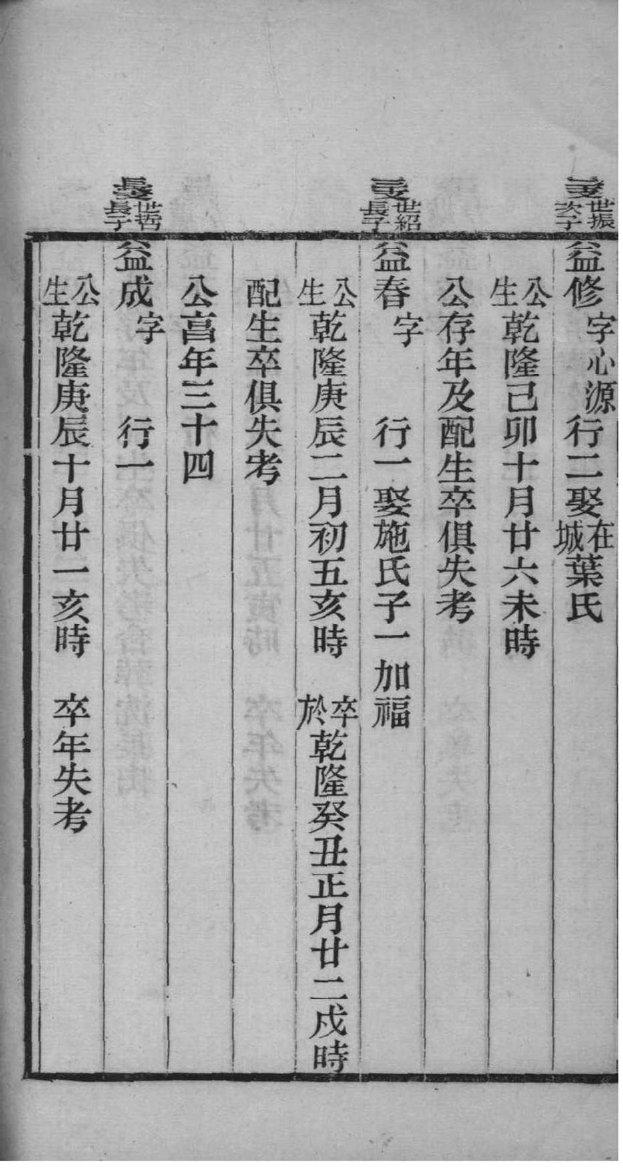 世振次子
益修字心源行二娶在城葉氏
公生乾隆己卯十月廿六未時
公存年及配生卒俱失考
世紹長子
益春字 行一娶施氏子一加福
公生乾隆庚辰二月初五亥時 卒於乾隆癸丑正月廿二戌時
配生卒俱失考
公亯年三十四
長支世哲長子
益成字 行一
公生乾隆庚辰十月廿一亥時 卒年失考